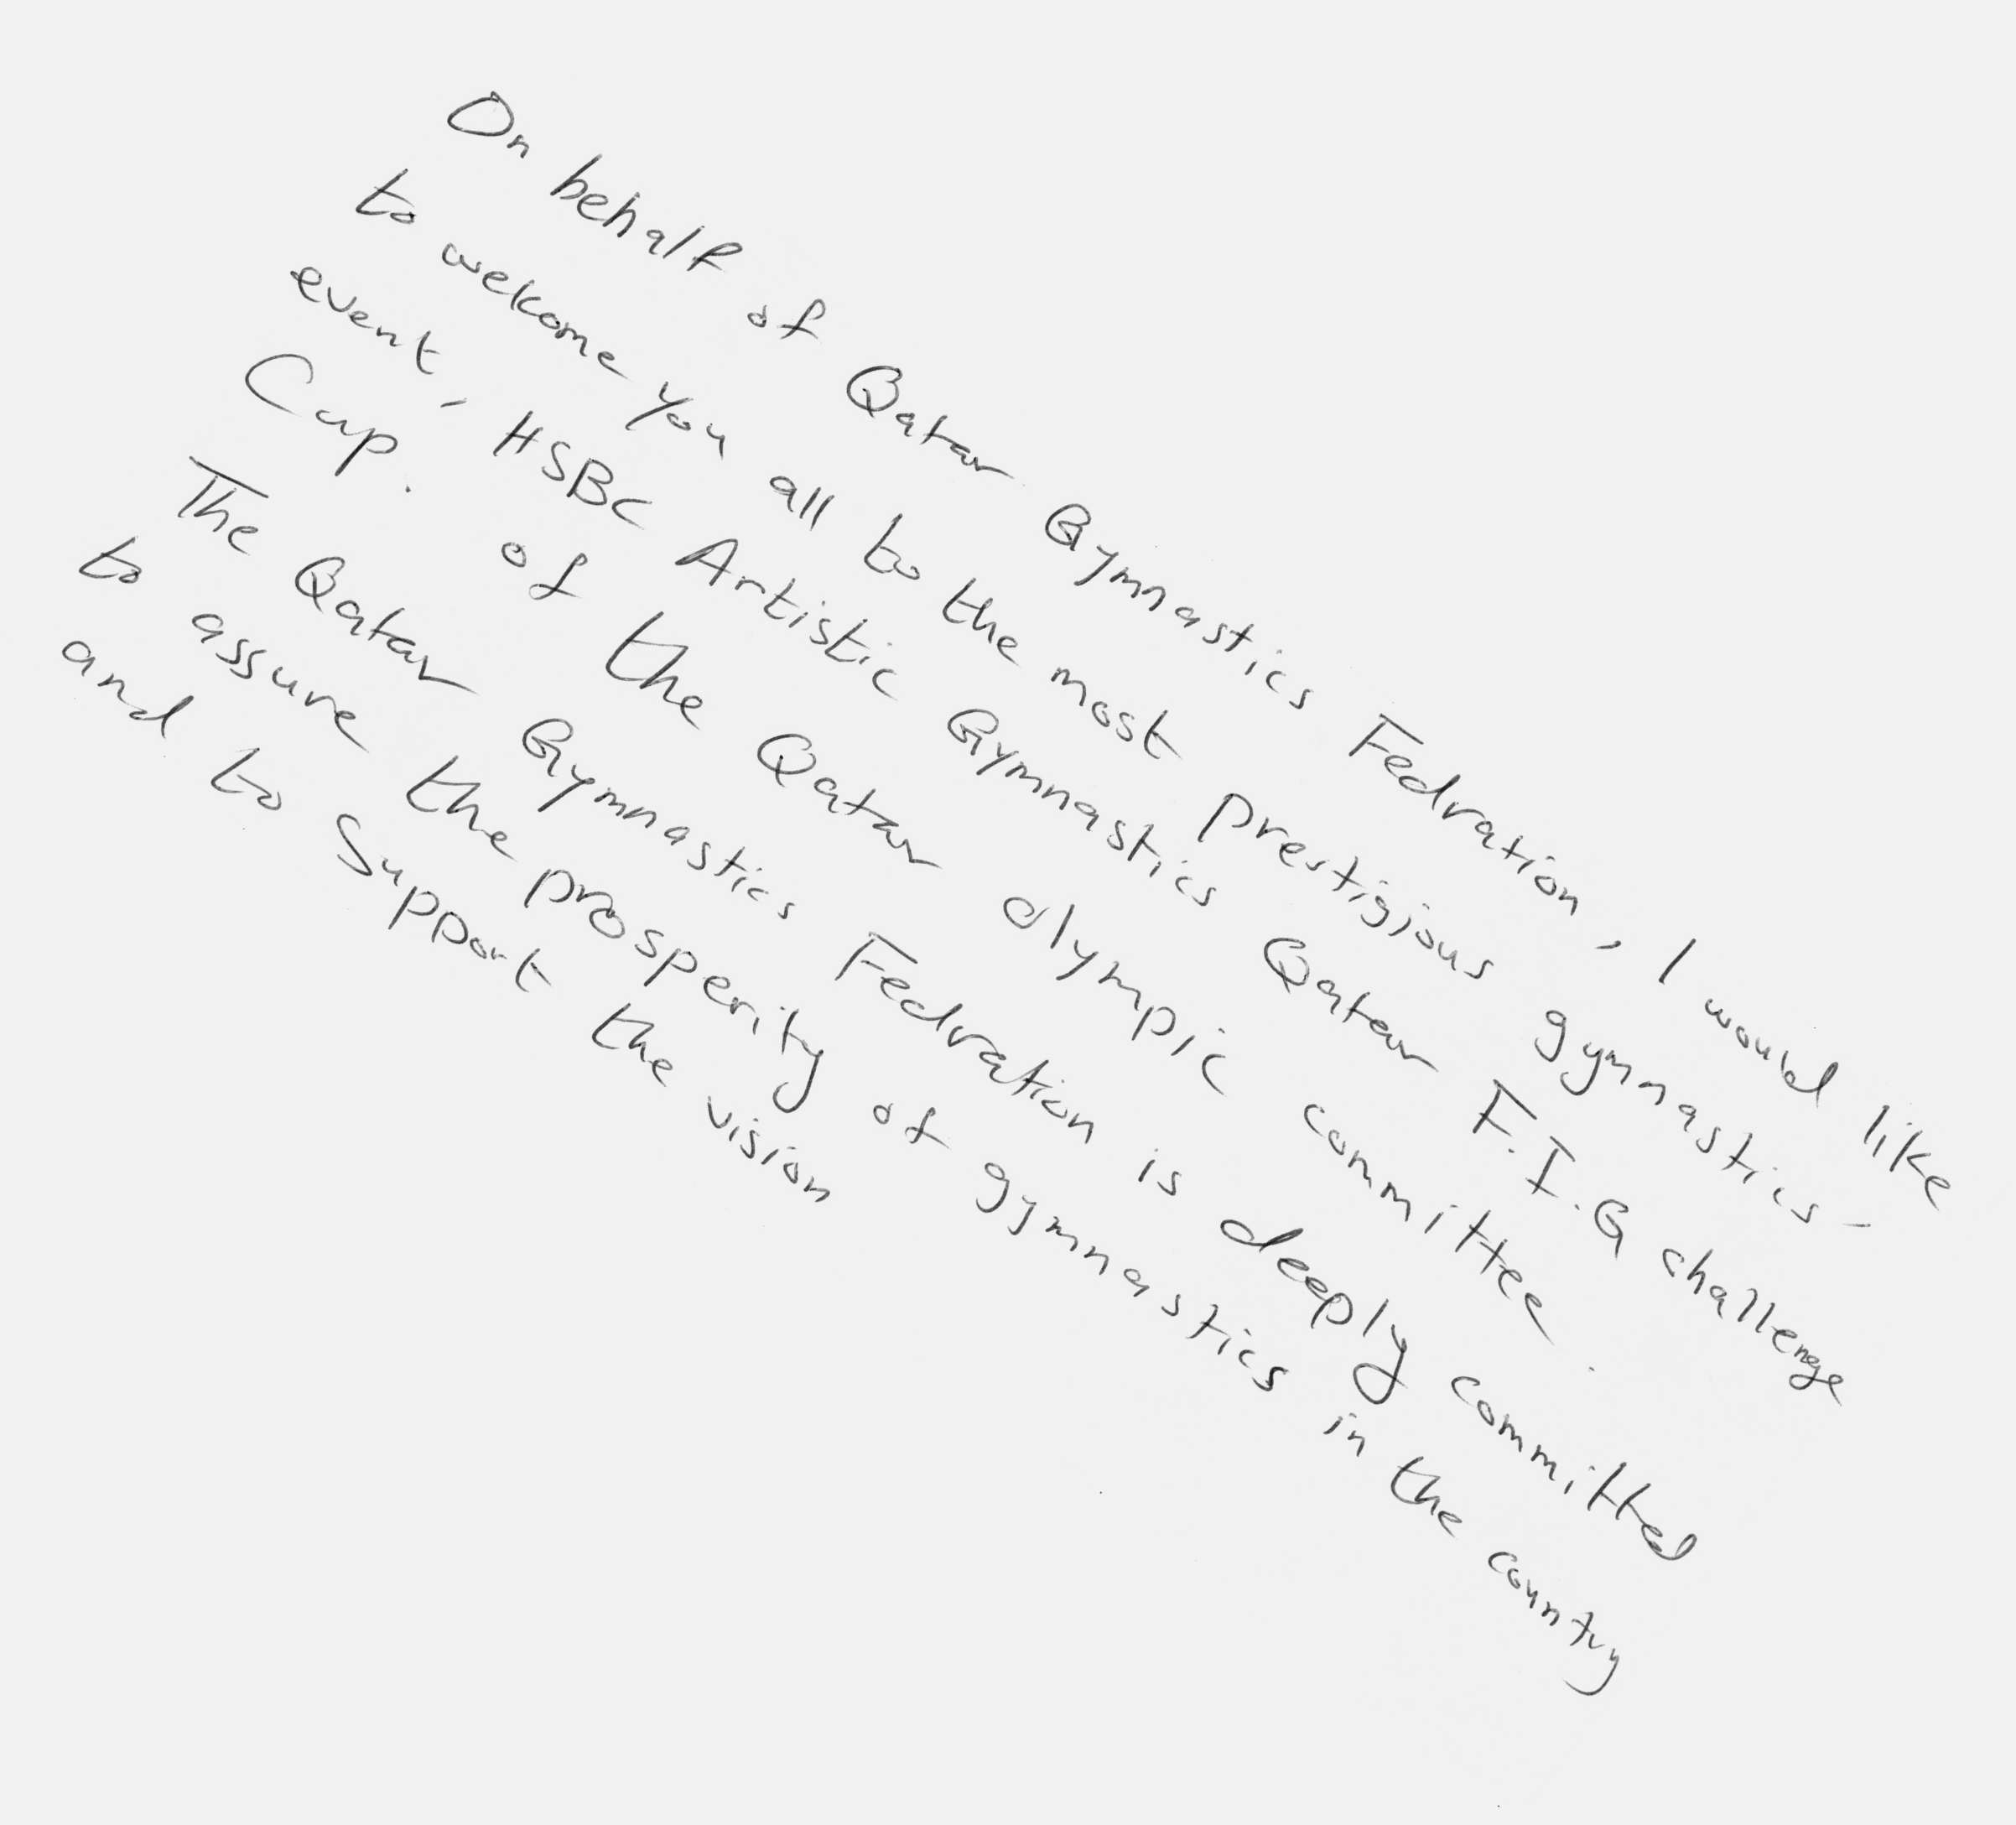 On behalf of Qatar Gymnastics Fedration, I would like
to welcome you all to the most prestigious gymnastics-
event, HSBC Artistic Gymnastics Qatar F.I.G challenge
Cup. of the Qatar olympic committee.
The Qatar Gymnastics Fedration is deeply committed
to assure the prosperity of gymnastics in the country
and to support the vision